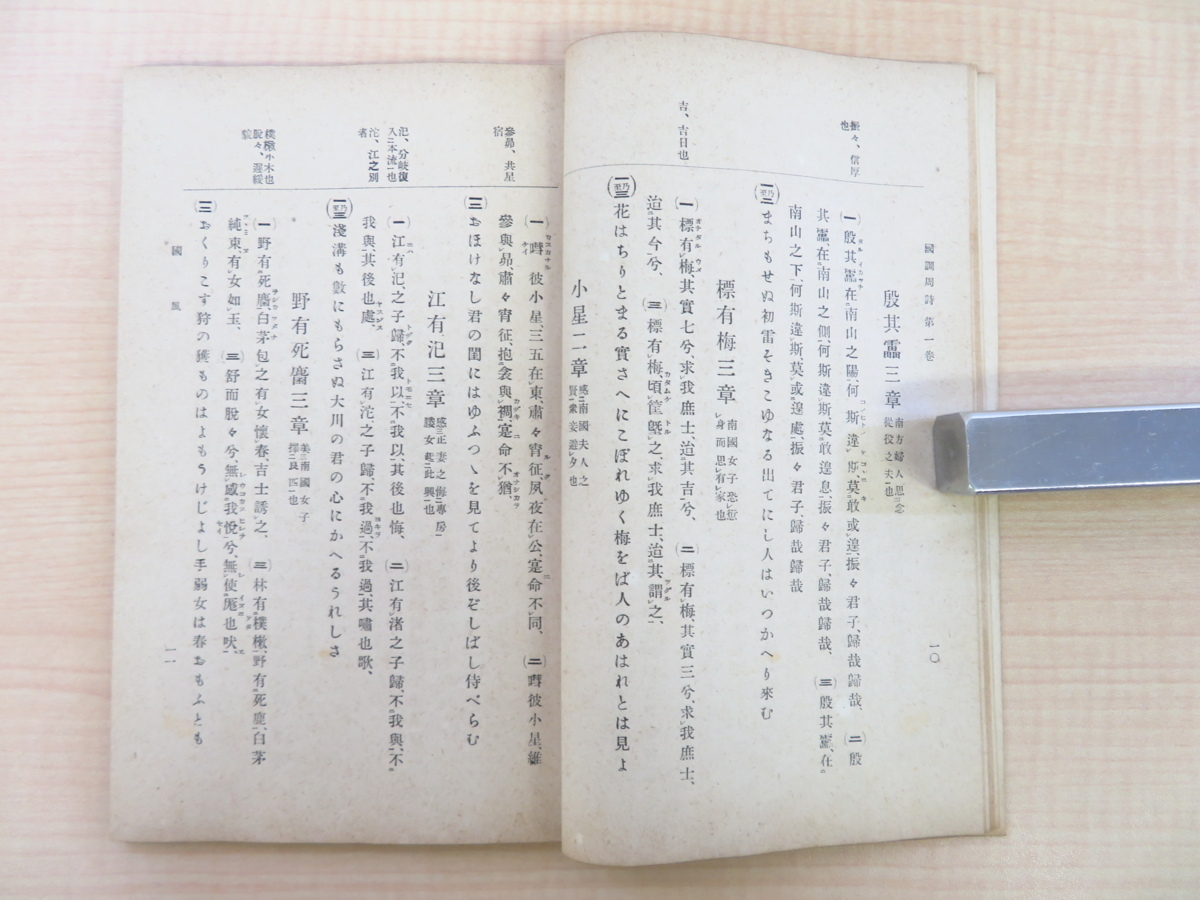 國調周詩第一卷
一〇
振々、信厚
也
殷其靁三章
南方婦人思念
從役之夫也
(一)殷其靁在南山之陽、何斯違斯、莫敢或遑、振々君子、歸哉歸哉、(二)殷
其靁、在南山之側、何斯違斯、莫敢遑息、振々君子、歸哉歸哉、(三)殷其靁、在
南山之下、何斯違斯、莫或遑處、振々君子、歸哉歸哉
まちもせぬ初雷そきこゆなる出てにし人はいつかへり來む
吉、吉日也
標有梅三章
南國女子恐愆
身而思有家也
(一)標有梅、其實七兮、求我庶士、迨其吉兮、(二)標有梅、其實三兮、求我庶士、
迨其今兮、(三)標有梅、頃筐墍之、求我庶士、迨其謂之、
花はちりとまる實さへにこぼれゆく梅をば人のあはれとは見よ
小星二章
感南國夫人之
賢衆妾遊夕也
參昴、共星
宿
(一)嘒彼小星、三五在東、肅々宵征、夙夜在公、寔命不同、(二)嘒彼小星、維
參與昴、肅々宵征、抱衾與裯、寔命不猶、
(三)おほけなし君の閨にはゆふつゝを見てより後ぞしばし侍べらむ
汜、分岐復
入本流也
沱、江之別
者
江有汜三章
感正妻之悔專房
媵女起此興也
(一)江有汜、之子歸、不我以、不我以、其後也悔、(二)江有渚之子歸、不我與、不
我與、其後也處、(三)江有沱之子歸、不我過、不我過、其嘯也歌、
淺溝も數にもらさぬ大川の君の心にかへるうれしさ
樸樕小木也
脫々、遲緩
貌
野有死麕三章
美南國女子
擇良匹也
(一)野有死麕、白茅包之有女懷春、吉士誘之、(二)林有樸樕、野有死鹿、白茅
純束、有女如玉、(三)舒而脫々兮、無感我帨兮、無使尨也吠、
(三)おくりこす狩の獲ものはよもうけじよし手弱女は春おもふとも
國風
一一